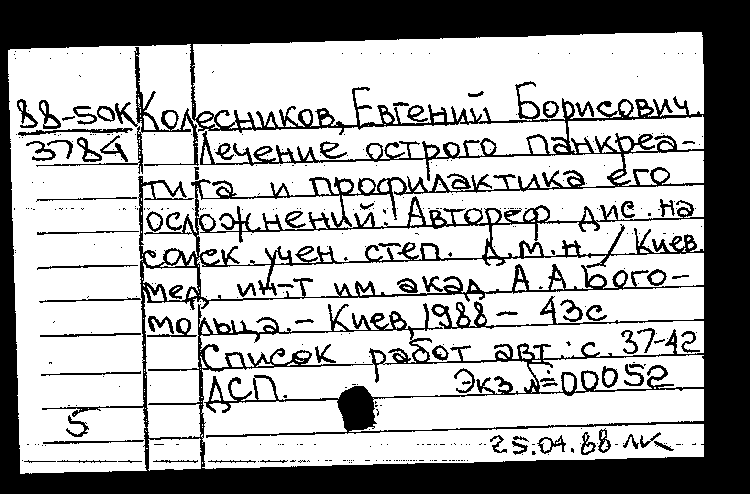 88-50К Колесников, Евгений Борисович.
3784 Лечение острого панкреа-
тита и профилактика его
осложнений: Автореф дис. на
соиск. учен. степ. д.м.н. / Киев.
мед. ин-т им. акад. А.А.Бого-
мольца. - Киев, 1988 - 43с
Список работ авт.: с. 37-42
ДСП. Экз.№=00052
5
25.04.88 лк